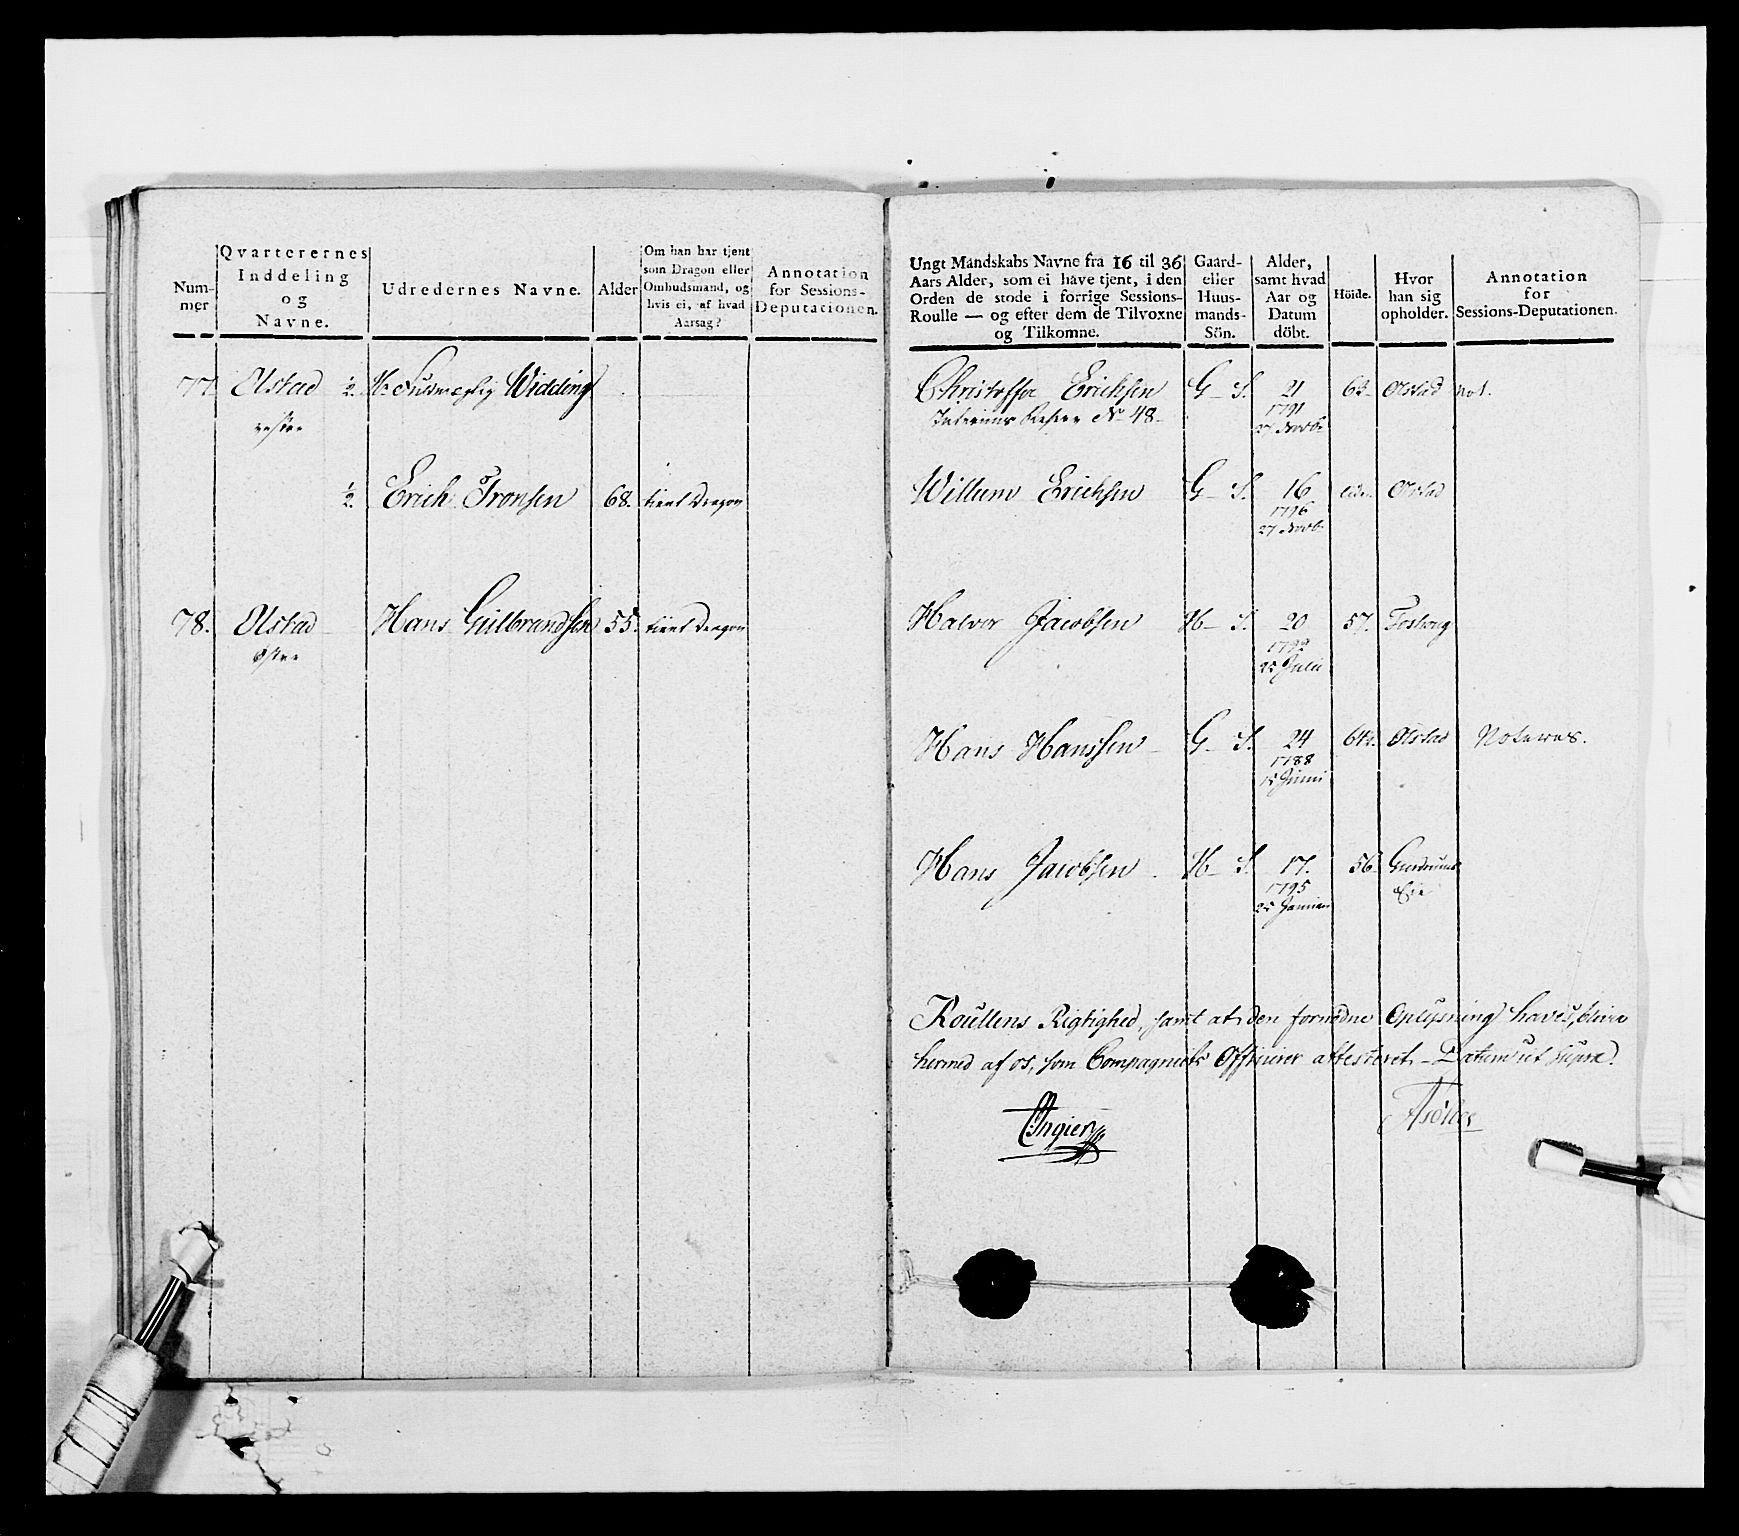 Num-
mer
Qvarterernes
Inddeling
og
Navne.
Udredernes Navne.
Alder
Om han har tjent
som Dragon eller
Ombudsmand, og
hvis ei, af hvad
Aarsag?
Annotation
for Sessions-
Deputationen.
77. Olstad ½ Hr Widding
vestre
½ Erich Tronsen 68. tient Dragon
78. Olstad Hans Gulbrandsen 55. tient Dragon
Østre
Ungt Mandskabs Navne fra 16 til 36
Aars Alder, som ei have tjent, i den
Orden de stode i forrige Sessions-
Roulle — og efter dem de Tilvoxne
og Tilkomne.
Gaard-
eller
Huus-
mands-
Sön.
Alder,
samt hvad
Aar og
Datum
döbt.
Höide.
Hvor
han sig
opholder.
Annotation
for
Sessions-Deputationen.
Christoffer Erichsen G- S. 21 Olstad not.
Interims Reserv No 48- 1791
27 Novb.
Willum Erichsen G- S. 16 Olstad
1796
27 Novb.
Halvor Jacobsen H- S. 20 57.
1792
25 Julii
Hans Hanssen G- S. 24 64½. Olstad Noteres.
1788
15 Junii
Hans Jacobsen H- S. 17. 56
1795 Eie
25
Roullens Rigtighed, samt at den fornødne Oplysning haves, blive
hermed af os, som Compagniets Officierer attesteret. Datum ut supra.
Angier